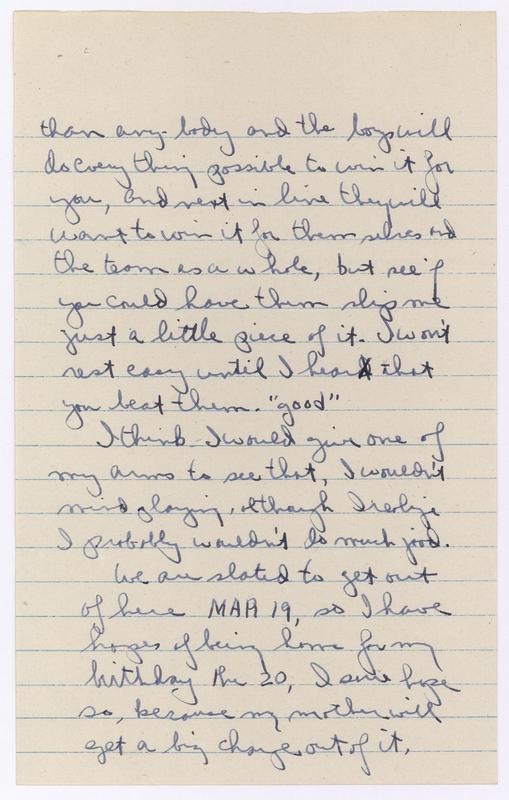 than any-body and the boys will
do everything possible to win it for
you, and next in line they will
want to win it for them selves and
the team as a whole, but see if
you could have them slip me
just a little piece of it. I won't
rest easy until I hear that
you beat them. "good"
I think I would give one of
my arms to see that, I wouldn't
mind playing, although I realize
I probably wouldn't do much good.
We are slated to get out
of here MAR 19, so I have
hopes of being home for my
birthday the 20, I sure hope
so, because my mother will
get a big charge out of it.